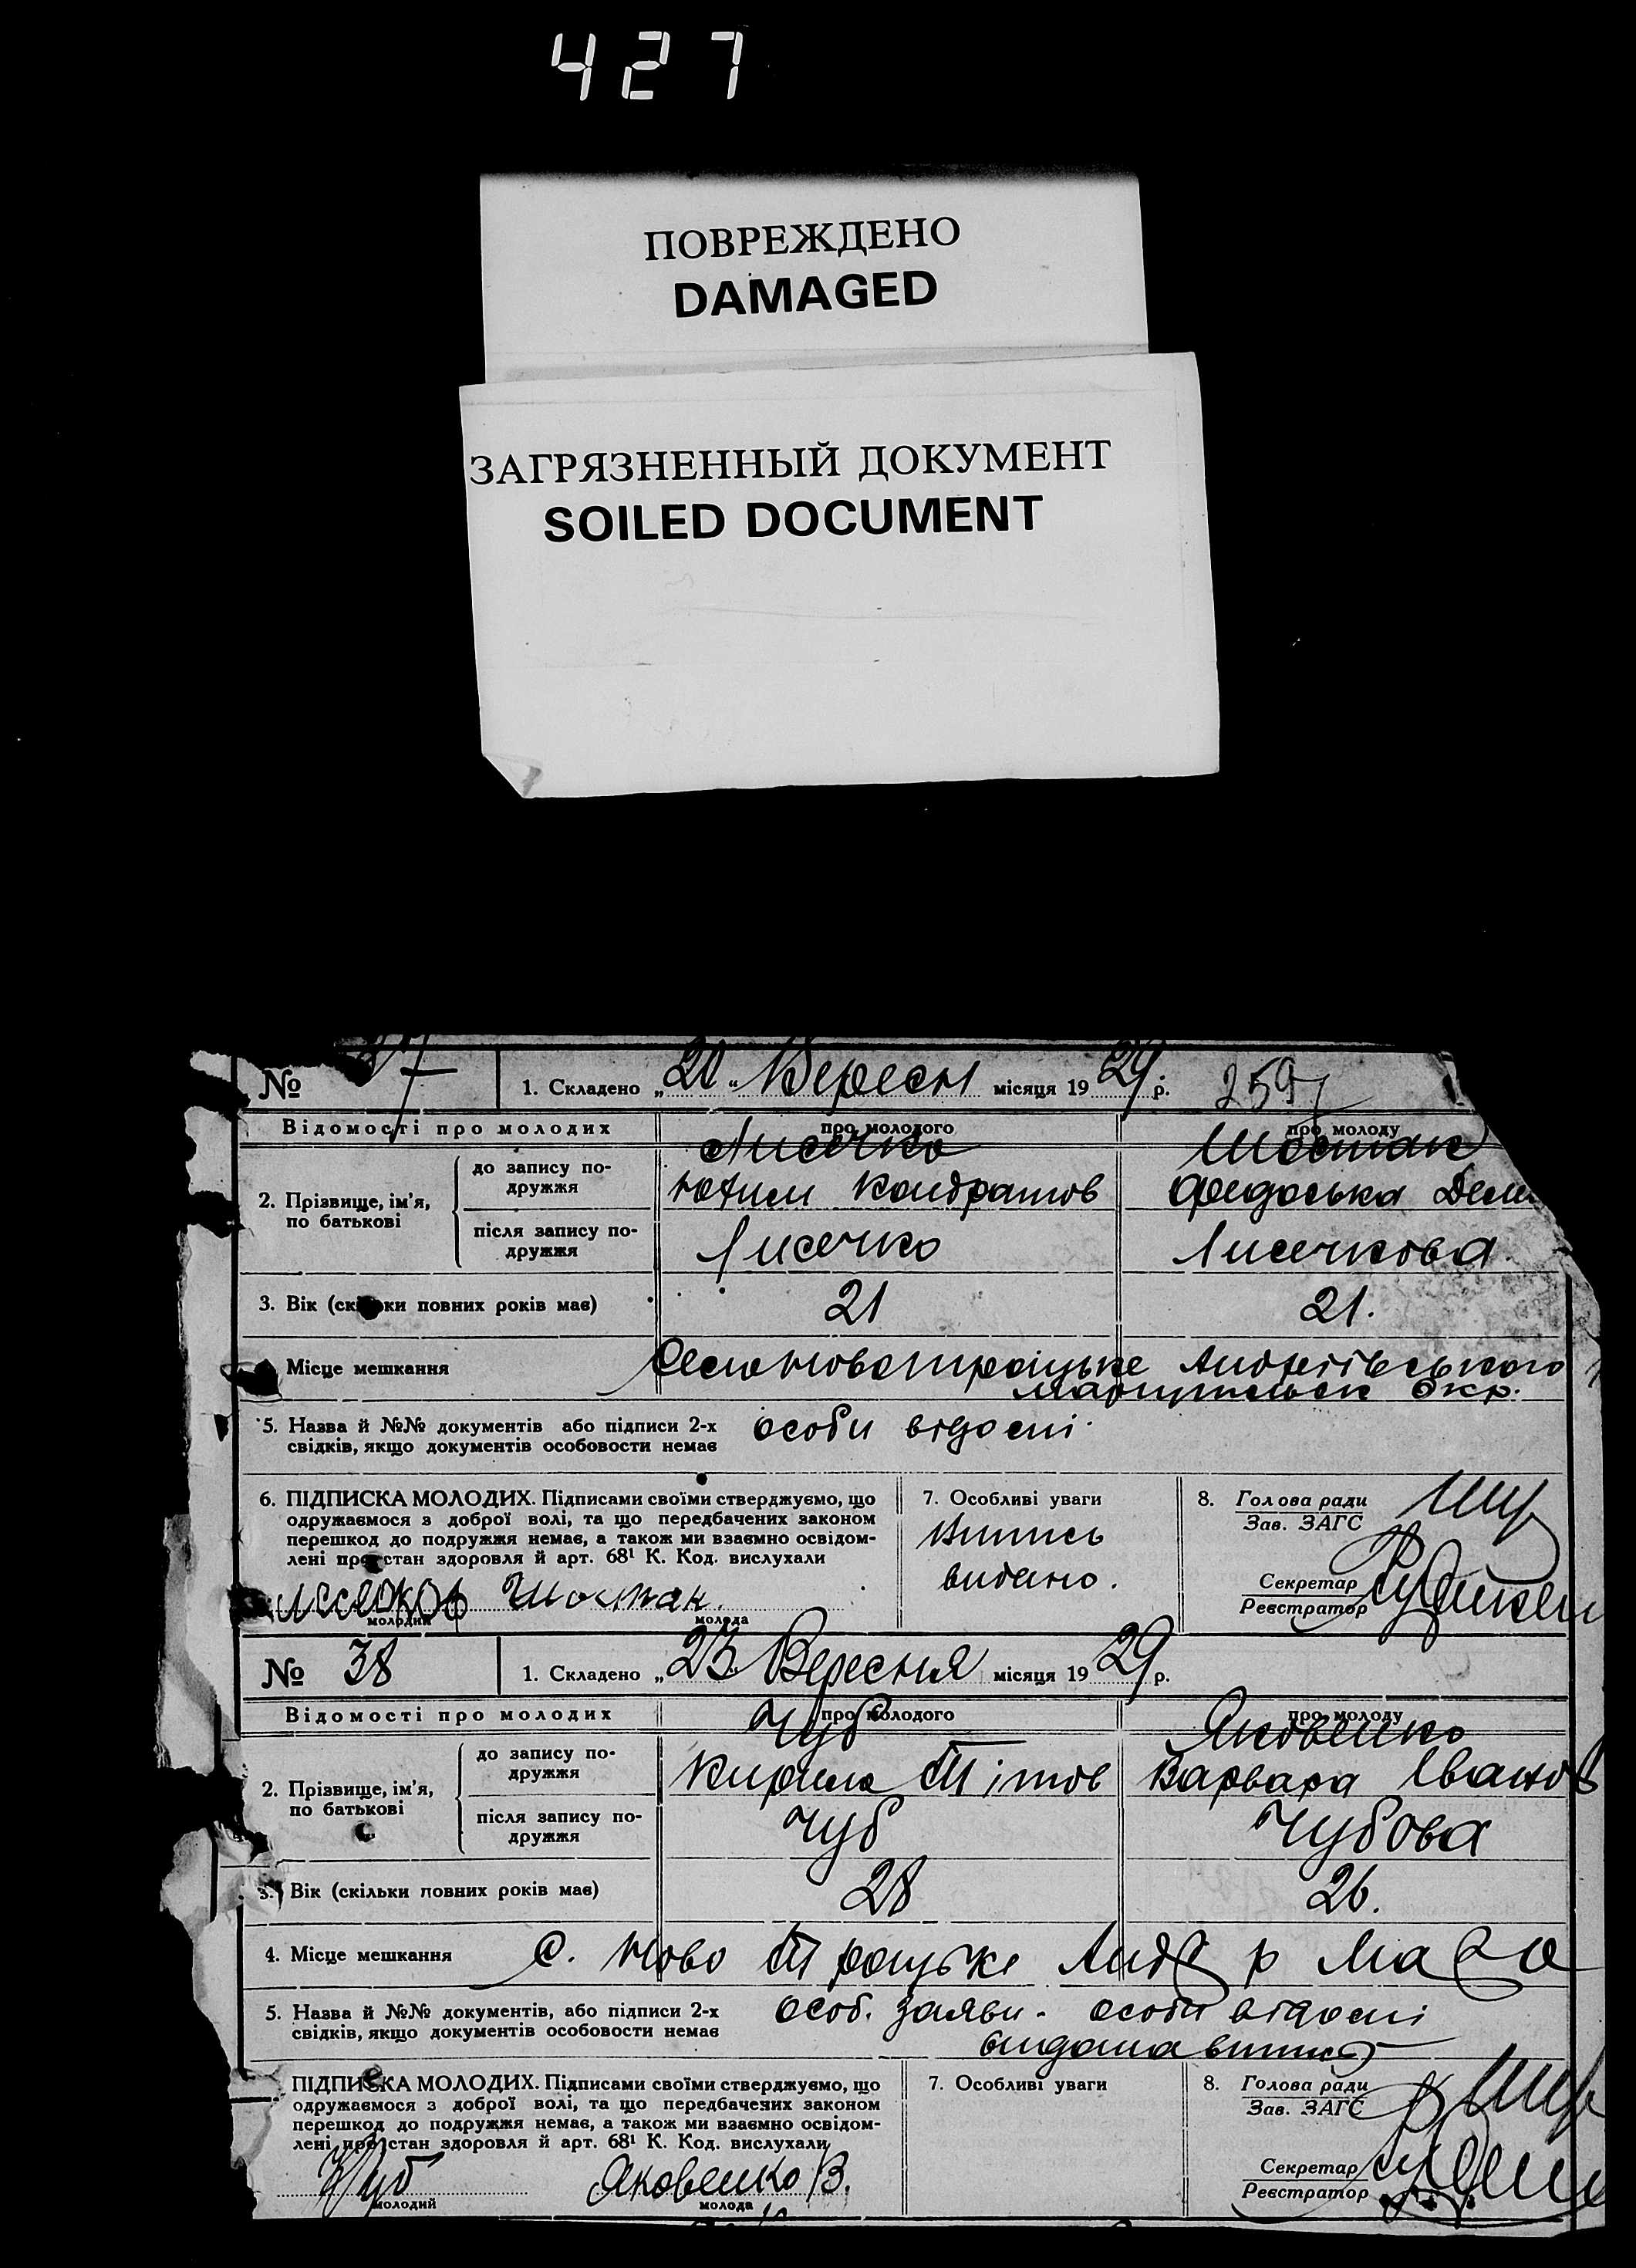 427
ПОВРЕЖДЕНО
DAMAGED
ЗАГРЯЗНЕННЫЙ ДОКУМЕНТ
SOILED DOCUMENT
№ 37 1. Складено „20" Вересн місяця 1929 р. 259
Відомості про молодих про молодого про молоду
Лисечко Шостак
2. Прізвище, ім'я, по батькові
до запису подружжя Юхим Кондратов Федоська
після запису подружжя Лисечко Лисечкова
3. Вік (скільки повних років має) 21 21.
Місце мешкання Село Новотроїцьке Андріївського
Маріупільск Окр.
5. Назва й №№ документів або підписи 2-х особи відомі
свідків, якщо документів особовости немає
6. ПІДПИСКА МОЛОДИХ. Підписами своїми стверджуємо, що 7. Особливі уваги 8. Голова ради
одружаємося з доброї волі, та що передбачених законом Випись Зав. ЗАГС
перешкод до подружжя немає, а також ми взаємно освідом-
лені про стан здоровля й арт. 68¹ К. Код. вислухали видано. Секретар
Шостак. Реєстратор
молодий молода
№ 38 1. Складено „23" Вересня місяця 1929 р.
Відомості про молодих про молодого про молоду
Чуб Яковенко
2. Прізвище, ім'я, по батькові
до запису подружжя Кирило Тітов Варвара Іванов
після запису подружжя Чуб Чубова
3. Вік (скільки повних років має) 28 26.
4. Місце мешкання С. Ново Троцьке Анд р Ма
5. Назва й №№ документів, або підписи 2-х особ. заяви - особи відомі
свідків, якщо документів особовости немає видана випис
ПІДПИСКА МОЛОДИХ. Підписами своїми стверджуємо, що 7. Особливі уваги 8. Голова ради
одружаємося з доброї волі, та що передбачених законом Зав. ЗАГС
перешкод до подружжя немає, а також ми взаємно освідом-
лені про стан здоровля й арт. 68¹ К. Код. вислухали Секретар
Чуб Яковенко В. Реєстратор
молодий молода